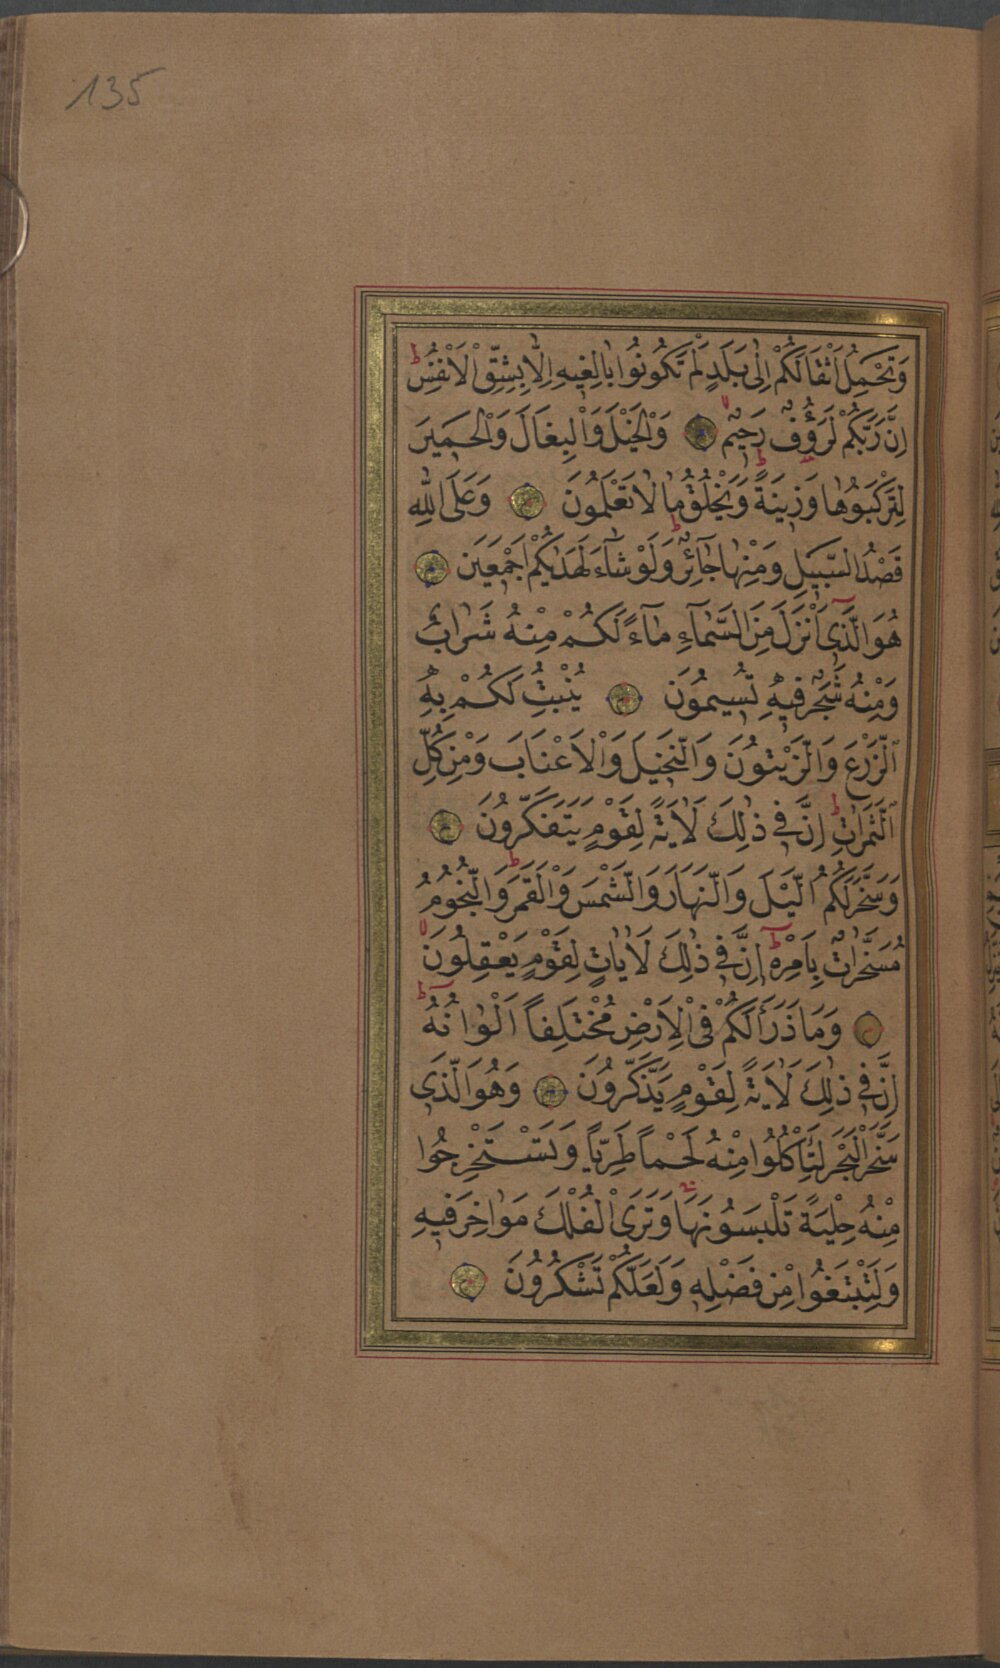 135
وَتَحْمِلُ اَثْقَالَكُمْ اِلٰى بَلَدٍ لَمْ تَكُونُوا بَالِغِيهِ اِلَّا بِشِقِّ الْاَنْفُسِۜ ط
اِنَّ رَبَّكُمْ لَرَؤُفٌ رَحِيمٌ وَالْخَيْلَ وَالْبِغَالَ وَالْحَمِيرَ
لِتَرْكَبُوهَا وَزِينَةً وَيَخْلُقُ مَا لَا تَعْلَمُونَ وَعَلَى اللّٰهِ
قَصْدُ السَّبِيلِ وَمِنْهَا جَآئِرٌ وَلَوْ شَآءَ لَهَدٰيكُمْ اَجْمَعِينَ
هُوَ الَّذِى اَنْزَلَ مِنَ السَّمَآءِ مَآءً لَكُمْ مِنْهُ شَرَابٌ
وَمِنْهُ شَجَرٌ فِيهِ تُسِيمُونَ يُنْبِتُ لَكُمْ بِهِ
الزَّرْعَ وَالزَّيْتُونَ وَالنَّخِيلَ وَالْاَعْنَابَ وَمِنْ كُلِّ
الثَّمَرَاتِ ط اِنَّ فِى ذٰلِكَ لَاٰيَةً لِقَوْمٍ يَتَفَكَّرُونَ
وَسَخَّرَ لَكُمُ الَّيْلَ وَالنَّهَارَ وَالشَّمْسَ وَالْقَمَرَ ط وَالنُّجُومُ
مُسَخَّرَاتٌ بِاَمْرِهِ ط اِنَّ فِى ذٰلِكَ لَاٰيَاتٍ لِقَوْمٍ يَعْقِلُونَ
وَمَا ذَرَاَ لَكُمْ فِى الْاَرْضِ مُخْتَلِفًا اَلْوَانُهُ ط
اِنَّ فِى ذٰلِكَ لَاٰيَةً لِقَوْمٍ يَذَّكَّرُونَ وَهُوَ الَّذِى
سَخَّرَ الْبَحْرَ لِتَاْكُلُوا مِنْهُ لَحْمًا طَرِيًّا وَتَسْتَخْرِجُوا
مِنْهُ حِلْيَةً تَلْبَسُونَهَا وَتَرَى الْفُلْكَ مَوَاخِرَ فِيهِ
وَلِتَبْتَغُوا مِنْ فَضْلِهِ وَلَعَلَّكُمْ تَشْكُرُونَ